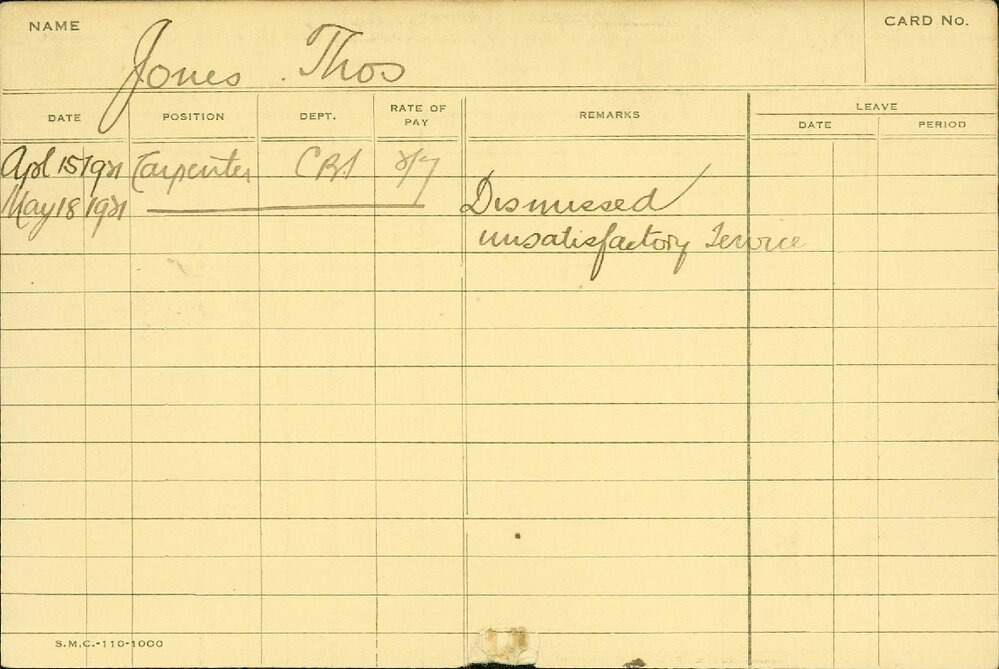 NAME Jones . Thos CARD No.
DATE POSITION DEPT. RATE OF PAY REMARKS LEAVE
DATE PERIOD
Apl 15 1921 Carpenter
May 18 1921 Dismissed
unsatisfactory Service
S.M.C.-110-1000